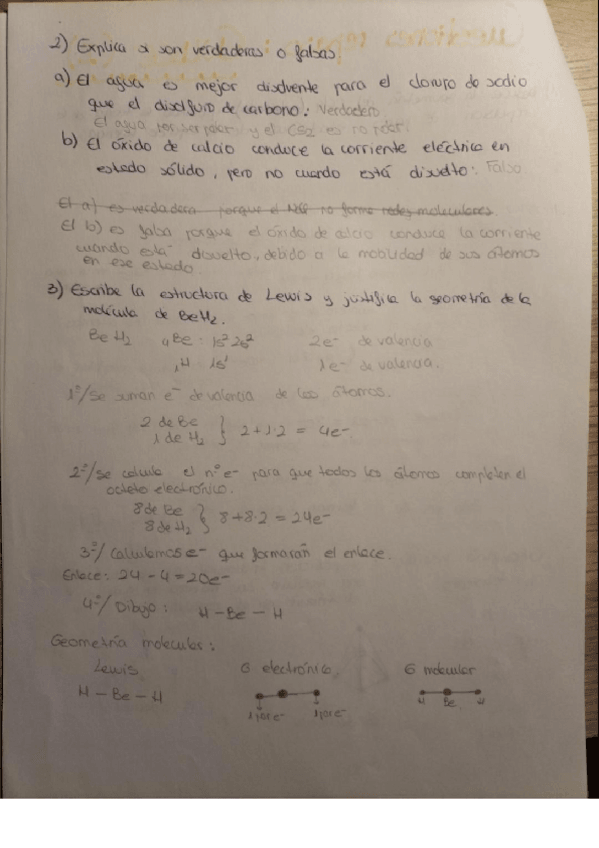 2) Explica si son verdaderas o falsas
a) El agua es mejor disolvente para el cloruro de sodio
que el disulfuro de carbono: Verdadero
El agua por ser polar y el CS2 es no polar.
b) El óxido de calcio conduce la corriente eléctrica en
estado sólido, pero no cuando está disuelto: Falso
El a) es verdadera porque el no forma redes moleculares.
El b) es falsa porque el óxido de calcio conduce la corriente
cuando está disuelto, debido a la movilidad de sus átomos
en ese estado
3) Escribe la estructura de Lewis y justifica la geometría de la
molécula de BeH2.
BeH2 4Be: 1s² 2s² 2e- de valencia
1H 1s¹ 1e- de valencia.
1º/ Se suman e- de valencia de los átomos.
2 de Be
1 de H2 } 2+1·2 = 4e-
2º/ Se calcula el nº e- para que todos los átomos completen el
octeto electrónico.
8 de Be
8 de H2 } 8+8·2 = 24e-
3º/ Calculamos e- que formarán el enlace.
Enlace: 24-4=20e-
4º/ Dibujo: H-Be-H
Geometría molecular:
Lewis G electrónico. G molecular
H-Be-H
1 par e- 1 par e- H Be H